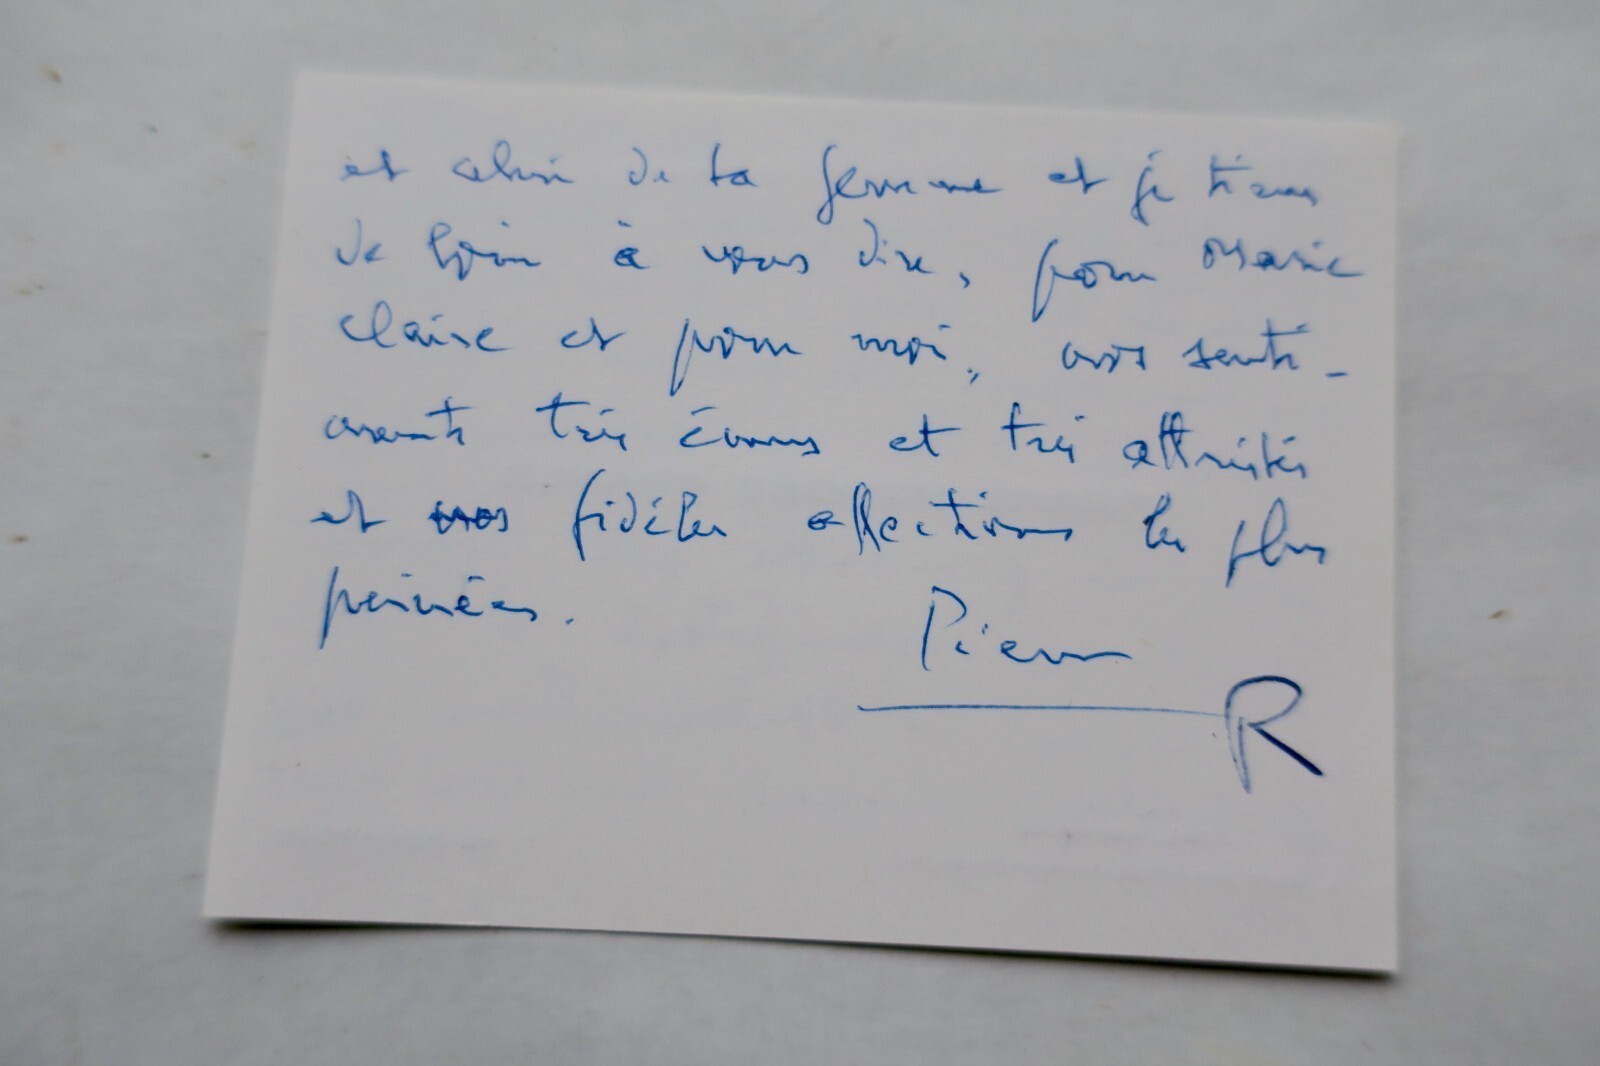 et celui de ta femme et je tiens
de loin à vous dire, pour Marie
Claire et pour moi, nos senti-
ments très émus et très attristés
et nos fidèles affections les plus
peinées.
Pierre
R